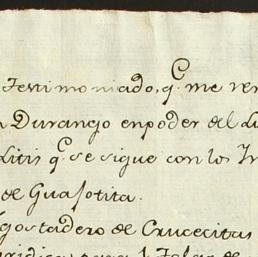 Testimoniado, q.e me ve
Durango en poder del
Litis q.e se sigue con los
de Guasotita.
gostadero de Crucecitas